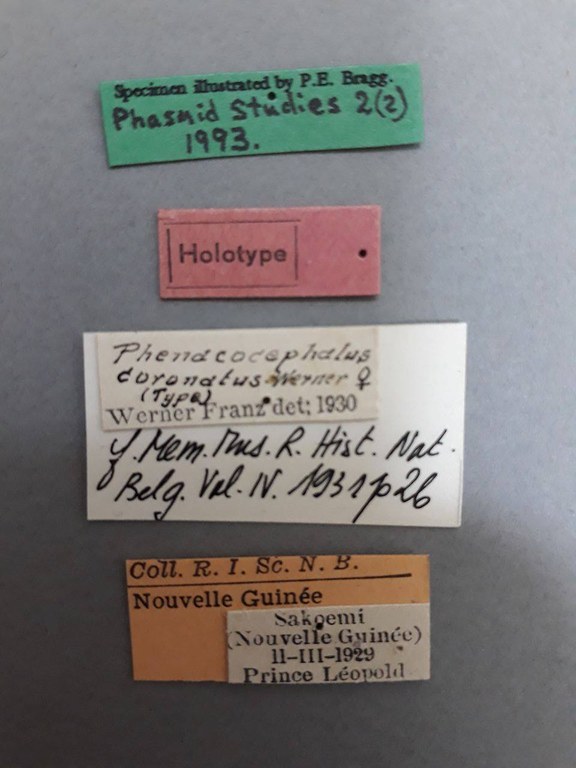 Specimen illustrated by P.E. Bragg.
Phasmid Studies 2(2)
1993.
Holotype
Phenacocephalus
coronatus Werner ♀
(Type)
Werner Franz det; 1930
Mem. Mus. R. Hist. Nat.
Belg. Vol. IV. 1931 p 26
Coll. R. I. Sc. N. B.
Nouvelle Guinée
Sakoemi
(Nouvelle Guinée)
11-III-1929
Prince Léopold